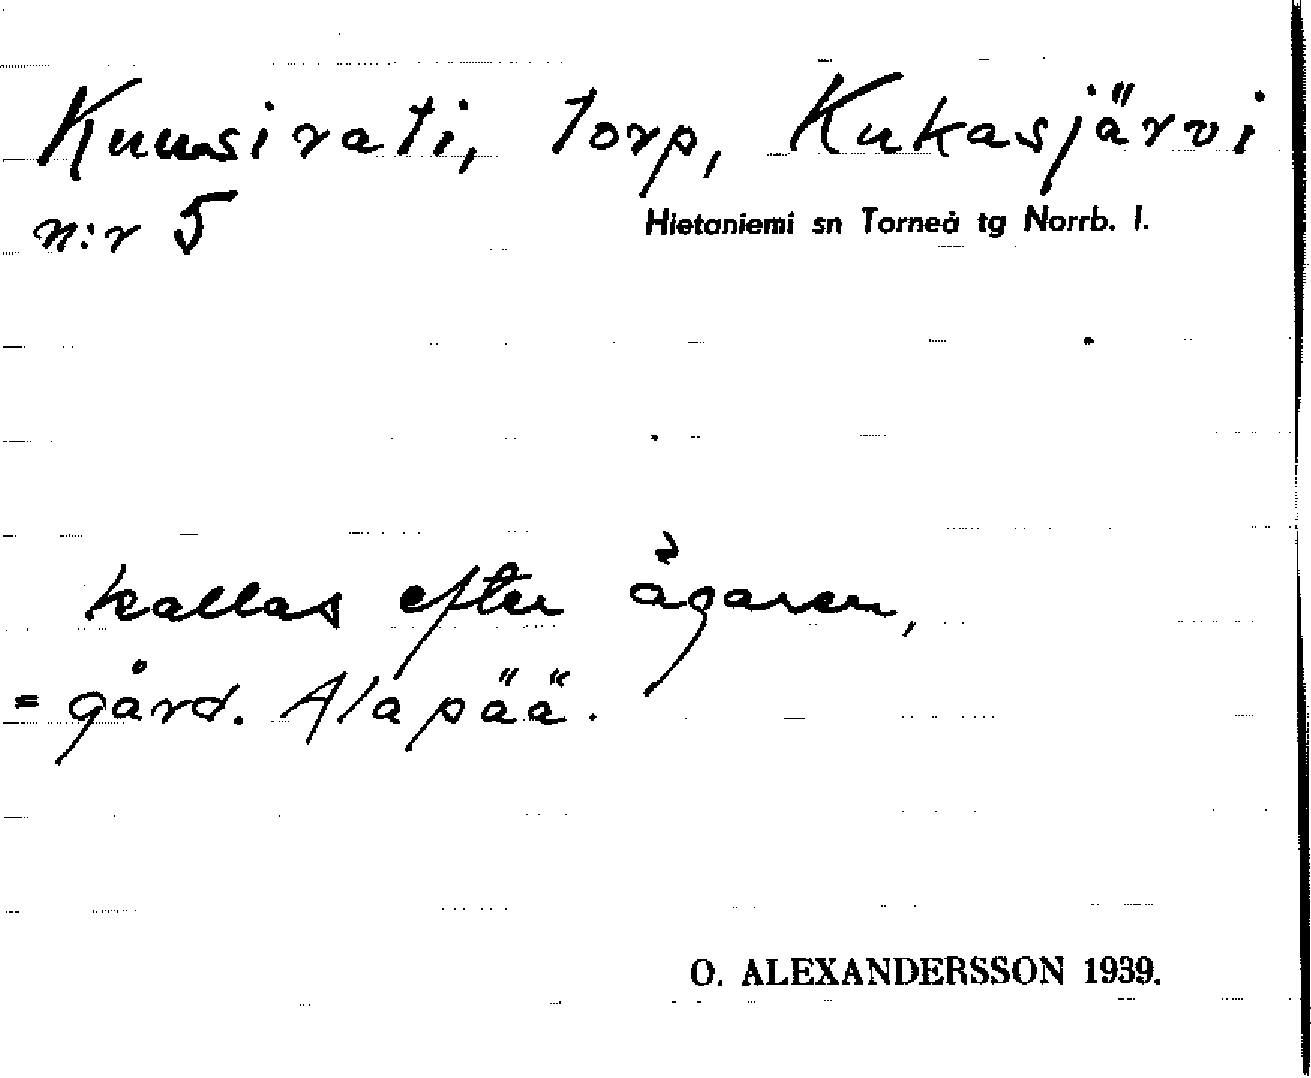 Kuusirati, torp, Kukasjärvi
n:r 5
Hietaniemi sn Torneå tg Norrb. l.
kallas efter ägaren,
= gård. Alapää.
O. ALEXANDERSSON 1939.